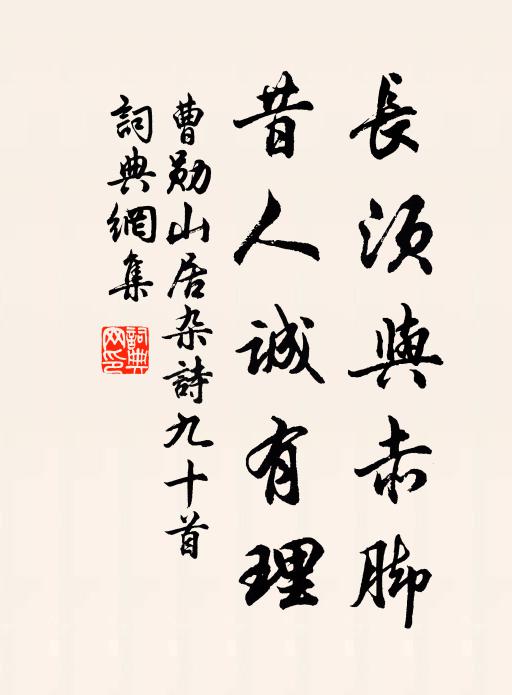 長須與赤脚
昔人誠有理
曹勛山居杂詩九十首
詞典網集
詞典網印